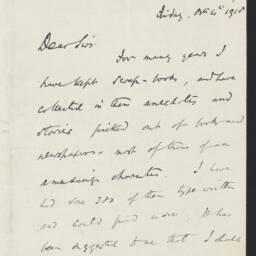 Friday, Oct 4th 1918
Dear Sir:
For many years I
have kept scrap-books, and have
collected in them anecdotes and
stories picked out of books and
newspapers - most of them of an
amusing character. I have
had some 380 of them type written
and could find more. It has
been suggested to me that I should